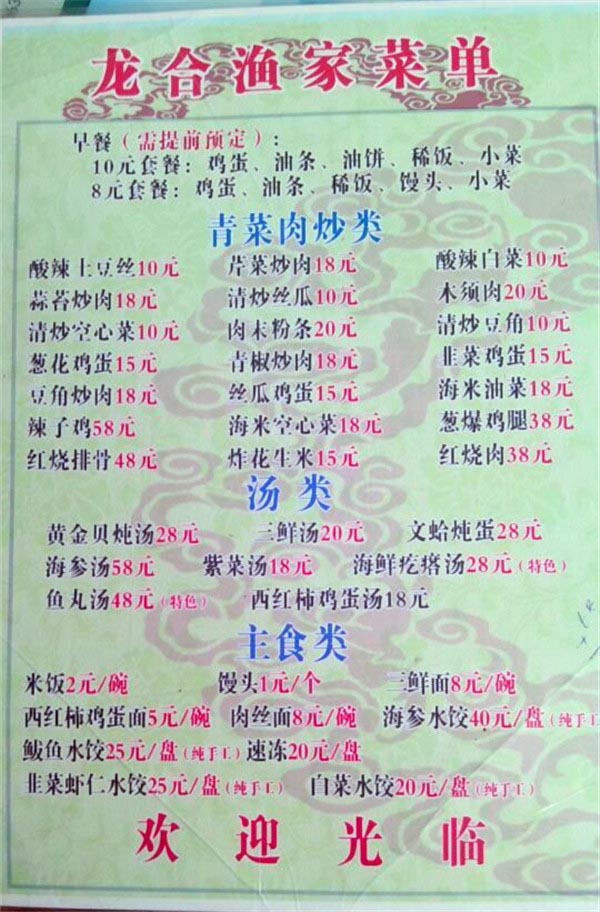 龙合渔家菜单
早餐(需提前预定):
10元套餐:鸡蛋、油条、油饼、稀饭、小菜
8元套餐:鸡蛋、油条、稀饭、馒头、小菜
青菜肉炒类
酸辣土豆丝10元 芹菜炒肉18元 酸辣白菜10元
蒜苔炒肉18元 清炒丝瓜10元 木须肉20元
清炒空心菜10元 肉末粉条20元 清炒豆角10元
葱花鸡蛋15元 青椒炒肉18元 韭菜鸡蛋15元
豆角炒肉18元 丝瓜鸡蛋15元 海米油菜18元
辣子鸡58元 海米空心菜18元 葱爆鸡腿38元
红烧排骨48元 炸花生米15元 红烧肉38元
汤类
黄金贝炖汤28元 三鲜汤20元 文蛤炖蛋28元
海参汤58元 紫菜汤18元 海鲜疙瘩汤28元(特色)
鱼丸汤48元(特色) 西红柿鸡蛋汤18元
主食类
米饭2元/碗 馒头1元/个 三鲜面8元/碗
西红柿鸡蛋面5元/碗 肉丝面8元/碗 海参水饺40元/盘(纯手工)
鲅鱼水饺25元/盘(纯手工) 速冻20元/盘
韭菜虾仁水饺25元/盘(纯手工) 自菜水饺20元/盘(纯手工)
欢迎光临